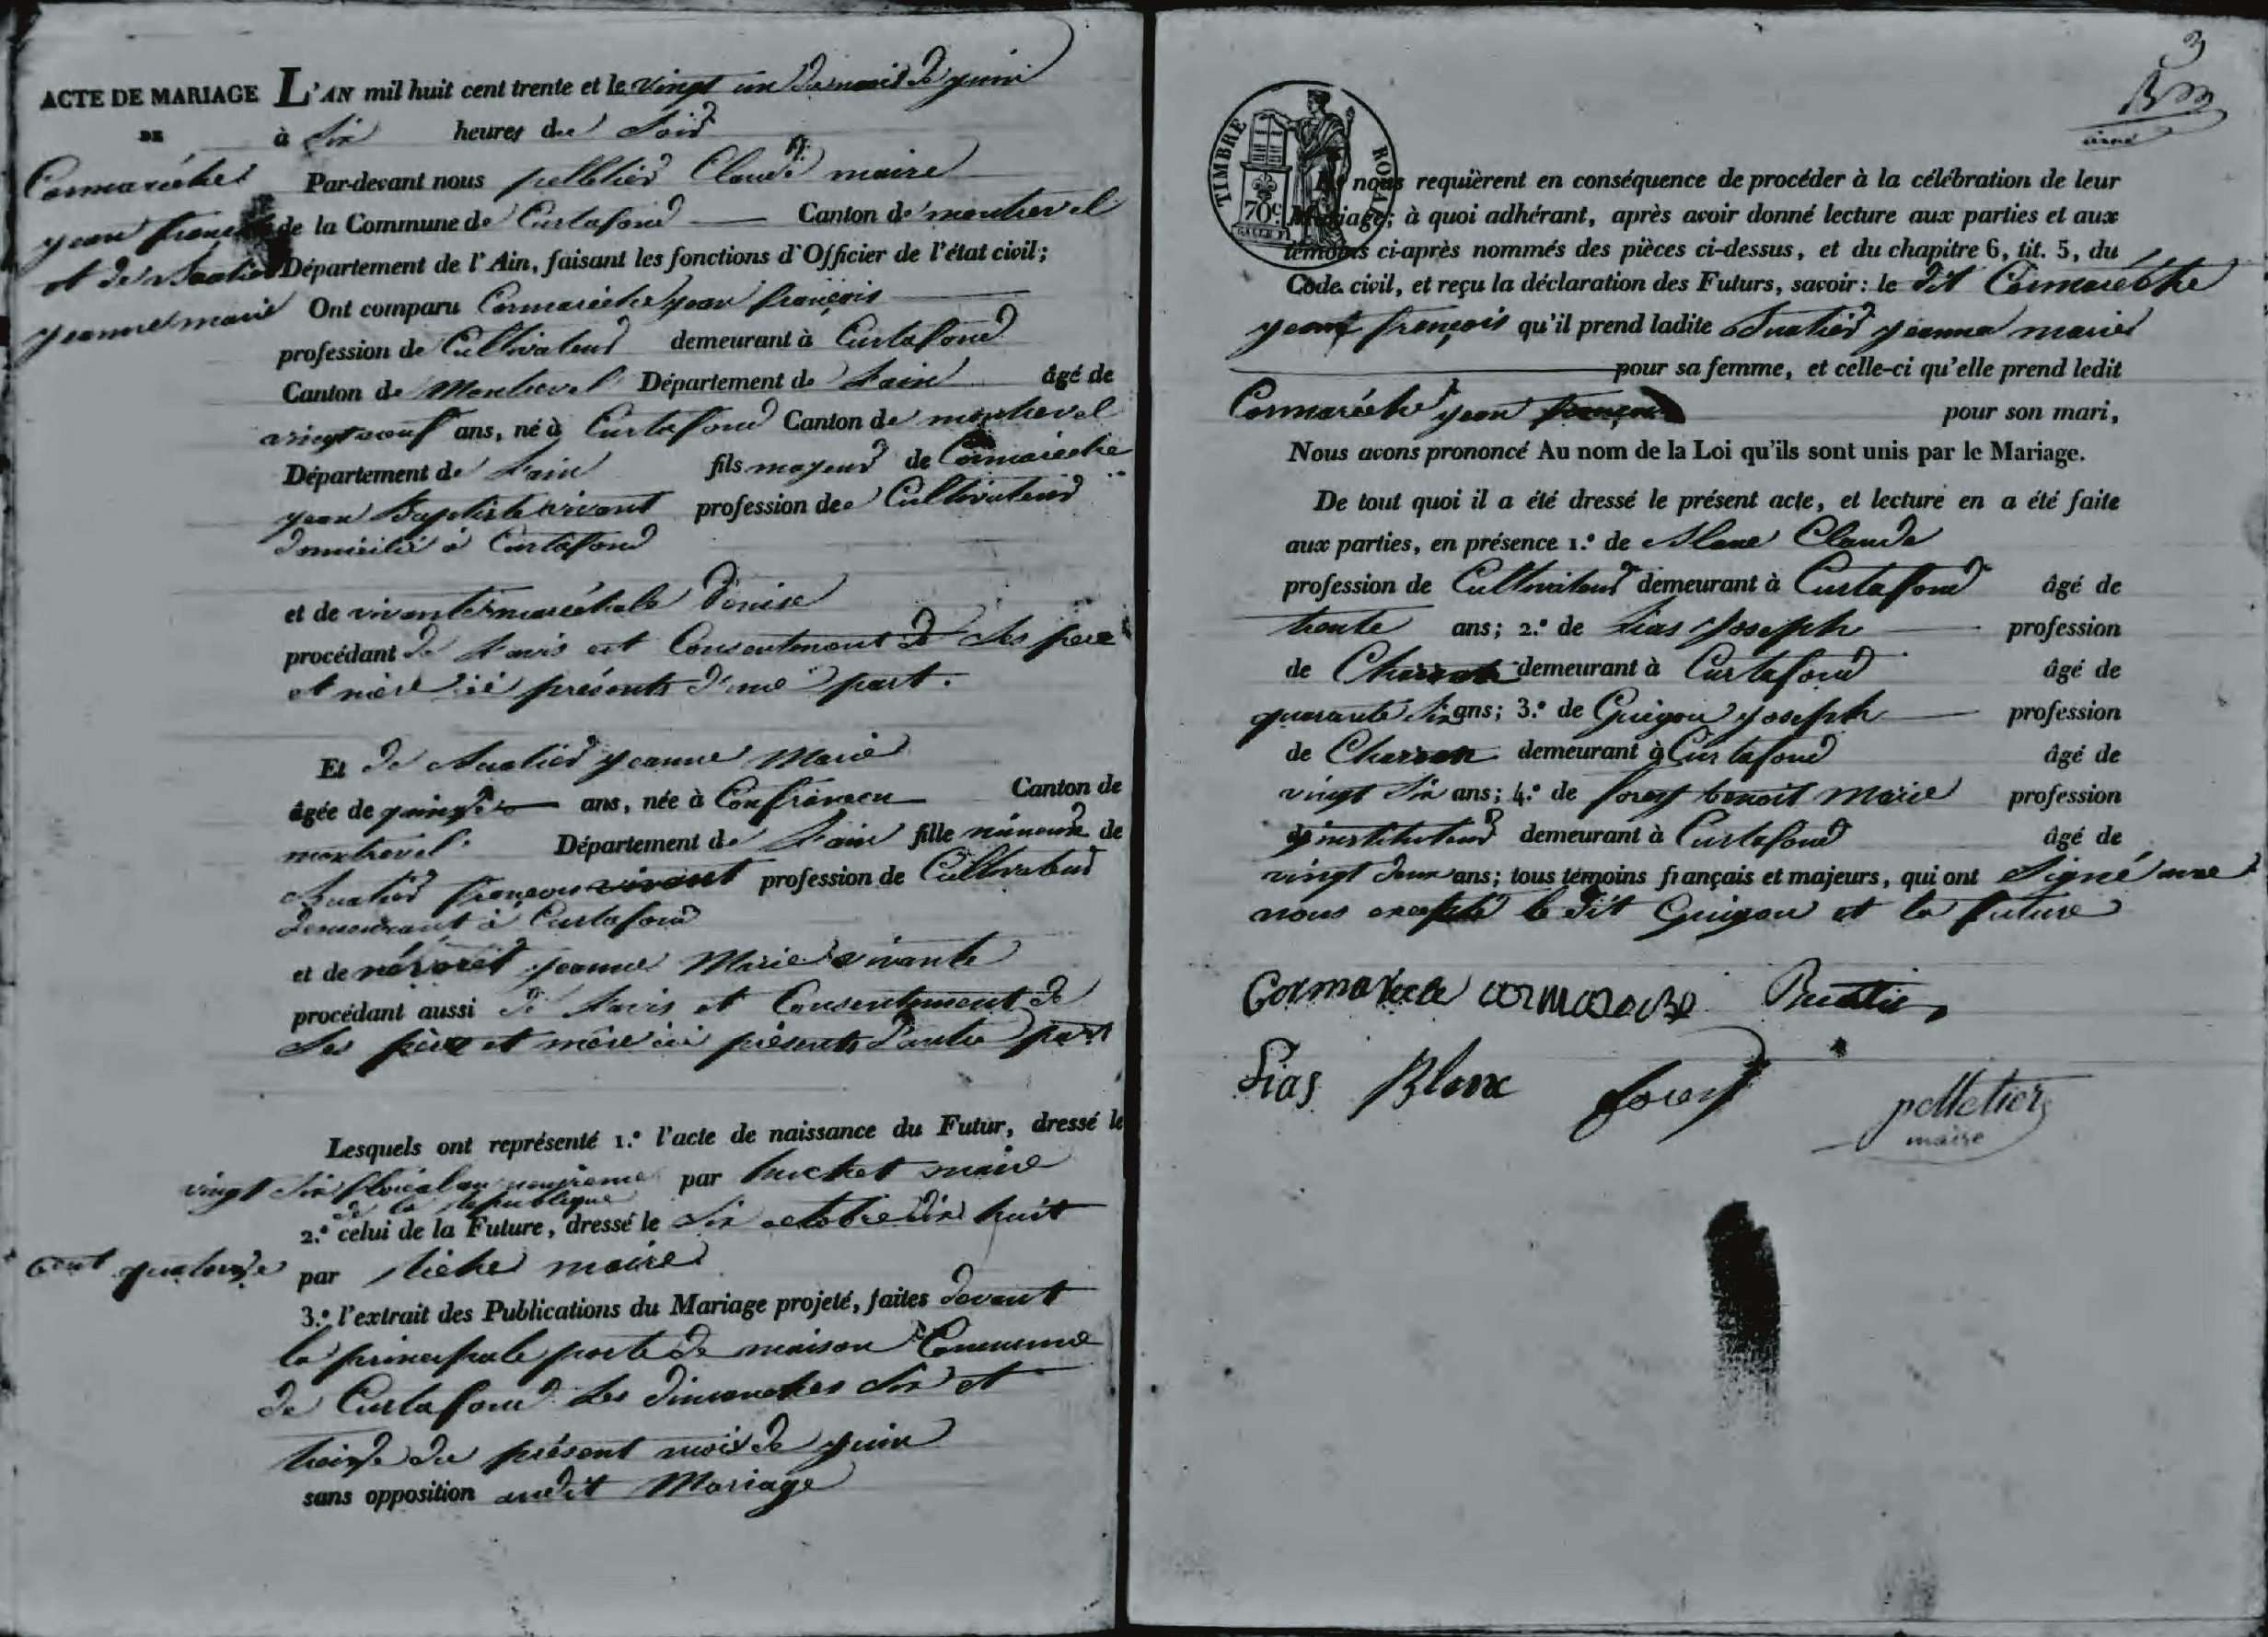 ACTE DE MARIAGE
DE
Cormarèche
jean françois
et de Buatier
jeanne marie
L'AN mil huit cent trente et le vingt un du mois de juin
à six heures du soir
Par-devant nous pelletier Claude maire
de la Commune de Curtafond Canton de montrevel
Département de l'Ain, faisant les fonctions d'Officier de l'état civil;
Ont comparu Cormarèche jean françois
profession de Cultivateur demeurant à Curtafond
Canton de Montrevel Département de l'ain âgé de
vingt neuf ans, né à Curtafond Canton de montrevel
Département de l'ain fils majeur de Cormarèche
jean Baptiste vivant profession de Cultivateur
domicilié à Curtafond
et de vivante maréchale Denise
procédant de l'avis et Consentement de ses père
et mère ici présents d'une part.
Et de Buatier jeanne Marie
âgée de quinze ans, née à Confrançon Canton de
montrevel Département de l'ain fille mineure de
Buatier françois vivant profession de Cultivateur
demeurant à Curtafond
et de jeanne Marie vivante
procédant aussi de l'avis et Consentement de
ses père et mère ici présents d'autre part
Lesquels ont représenté 1.° l'acte de naissance du Futur, dressé le
vingt six floréal an neuvième par buchet maire
de la République
2.° celui de la Future, dressé le six octobre dix huit
cent quatorze par maire
3.° l'extrait des Publications du Mariage projeté, faites devant
la principale porte de maison Commune
de Curtafond les dimanches six et
treize du présent mois de juin
sans opposition audit Mariage
3
TIMBRE ROYAL
70c
nous requièrent en conséquence de procéder à la célébration de leur
Mariage; à quoi adhérant, après avoir donné lecture aux parties et aux
témoins ci-après nommés des pièces ci-dessus, et du chapitre 6, tit. 5, du
Code civil, et reçu la déclaration des Futurs, savoir: le dit Cormarèche
jean françois qu'il prend ladite Buatier jeanne marie
pour sa femme, et celle-ci qu'elle prend ledit
Cormarèche jean françois pour son mari,
Nous avons prononcé Au nom de la Loi qu'ils sont unis par le Mariage.
De tout quoi il a été dressé le présent acte, et lecture en a été faite
aux parties, en présence 1.° de Blanc Claude
profession de Cultivateur demeurant à Curtafond âgé de
trente ans; 2.° de Lias joseph profession
de Charron demeurant à Curtafond âgé de
quarante six ans; 3.° de Guigon joseph profession
de Charron demeurant à Curtafond âgé de
vingt six ans; 4.° de forest benoit Marie profession
d'instituteur demeurant à Curtafond âgé de
vingt deux ans; tous témoins français et majeurs, qui ont signé avec
nous excepté le dit Guigon et la future
Cormareche cormareche Buatier
Lias Blanc forest
pelletier
maire